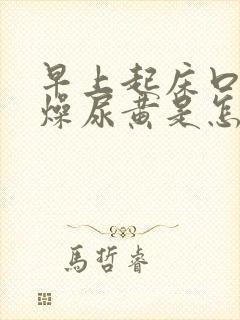 早上起床口
燥尿黄是怎
馬哲睿